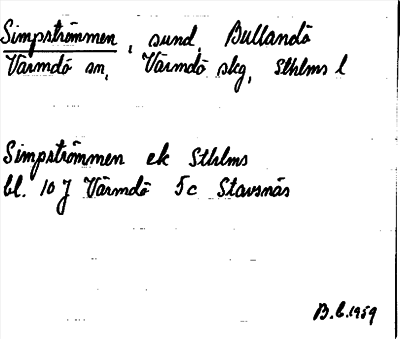 Simpströmmen, sund, Bullandö
Värmdö sn, Värmdö skg, Sthlms l
Simpströmmen ek Sthlms
bl. 10 J Värmdö 5c Stavsnäs
B.G. 1959